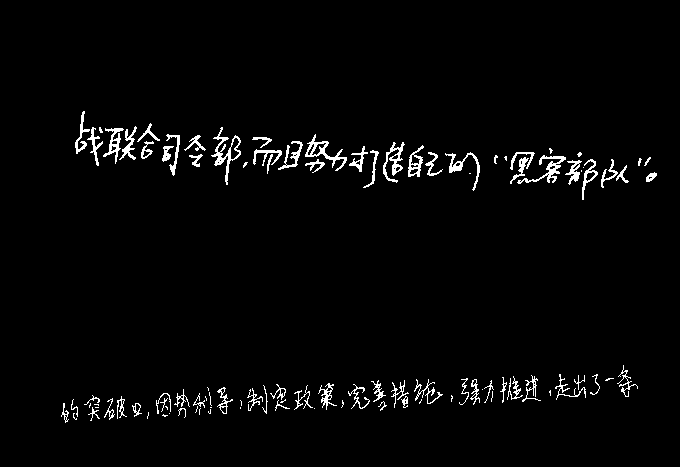 战联合司令部,而且努力打造自己的“黑客部队”。
的突破口,因势利导,制定政策,完善措施,强力推进,走出了一条